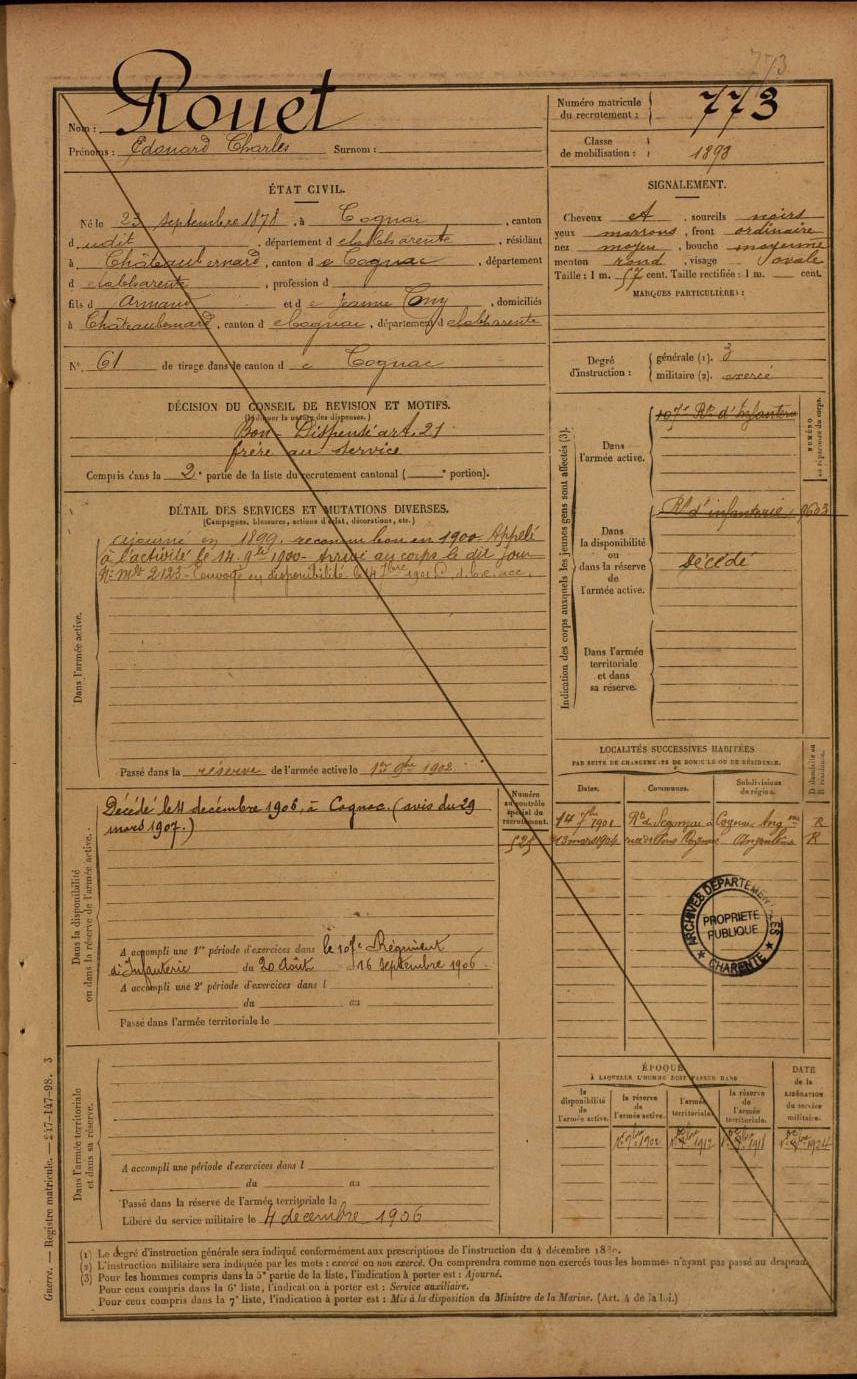 773
Nom : Rouet
Prénoms : Edouard Charles Surnom :
Numéro matricule
du recrutement : 773
Classe
de mobilisation : 1898
ÉTAT CIVIL.
Né le 23 septembre 1878, à Cognac, canton
dudit, département de la Charente, résidant
à Châteaubernard, canton de Cognac, département
de la Charente, profession d
fils d Armand et de Jeanne, domiciliés
à Châteaubernard, canton de Cognac, département de la Charente
N° 61 de tirage dans le canton de Cognac
SIGNALEMENT.
Cheveux et, sourcils noirs
yeux marrons, front ordinaire
nez moyen, bouche moyenne
menton rond, visage ovale
Taille : 1 m. 57 cent. Taille rectifiée : 1 m. cent.
MARQUES PARTICULIÈRES :
Degré
d'instruction :
générale (1). 3
militaire (2). exercé
DÉCISION DU CONSEIL DE REVISION ET MOTIFS.
(Indiquer la nature des dispenses.)
Bon - Dispensé art. 21
frère au service
Compris dans la 2e partie de la liste du recrutement cantonal ( e portion).
DÉTAIL DES SERVICES ET MUTATIONS DIVERSES.
(Campagnes, blessures, actions d'éclat, décorations, etc.)
Dans l'armée active.
Ajourné en 1899. reconnu bon en 1900 Appelé
à l'activité le 14 9bre 1900 - Arrivé au corps le dit jour
N° Mle 2123 - Envoyé en disponibilité le 14 7bre 1901
Passé dans la réserve de l'armée active le 1er 9bre 1902.
Indication des corps auxquels les jeunes gens sont affectés (3).
NUMÉRO
au répertoire du corps.
Dans
l'armée active.
107e Rt d'Infanterie
Dans
la disponibilité
ou
dans la réserve
de
l'armée active.
Rt d'infanterie
Décédé
Dans l'armée
territoriale
et dans
sa réserve.
Dans la disponibilité
ou dans la réserve de l'armée active.
Numéro
au contrôle
spécial du
recrutement.
525
Décédé le 4 décembre 1906, à Cognac. (avis du 29
mars 1907.)
A accompli une 1re période d'exercices dans le 107e Régiment
d'Infanterie du 20 Août 16 septembre 1906
A accompli une 2e période d'exercices dans l
du au
Passé dans l'armée territoriale le
LOCALITÉS SUCCESSIVES HABITÉES
PAR SUITE DE CHANGEMENTS DE DOMICILE OU DE RÉSIDENCE.
Dates.
Communes.
Subdivisions
de région.
D. domicile ou
R. résidence.
14 7bre 1901 Rte de Segonzac à Cognac R
13 mars 1904 rue de Pons Cognac Angoulême R
ARCHIVES DÉPARTEMENTALES
PROPRIÉTÉ
PUBLIQUE
★ CHARENTE ★
ÉPOQUE
À LAQUELLE L'HOMME DOIT PASSER DANS
la
disponibilité
de
l'armée active.
la réserve
de
l'armée active.
l'armée
territoriale.
la réserve
de
l'armée
territoriale.
DATE
de la
LIBÉRATION
du service
militaire.
1er 9bre 1902
Dans l'armée territoriale
et dans sa réserve.
A accompli une période d'exercices dans l
du au
Passé dans la réserve de l'armée territoriale le
Libéré du service militaire le 4 décembre 1906
(1) Le degré d'instruction générale sera indiqué conformément aux prescriptions de l'instruction du 4 décembre
(2) L'instruction militaire sera indiquée par les mots : exercé ou non exercé. On comprendra comme non exercés tous les hommes n'ayant pas passé au drapeau.
(3) Pour les hommes compris dans la 5e partie de la liste, l'indication à porter est : Ajourné.
Pour ceux compris dans la 6e liste, l'indication à porter est : Service auxiliaire.
Pour ceux compris dans la 7e liste, l'indication à porter est : Mis à la disposition du Ministre de la Marine. (Art. 4 de la loi.)
Guerre. — Registre matricule. — 247-147-98. 3